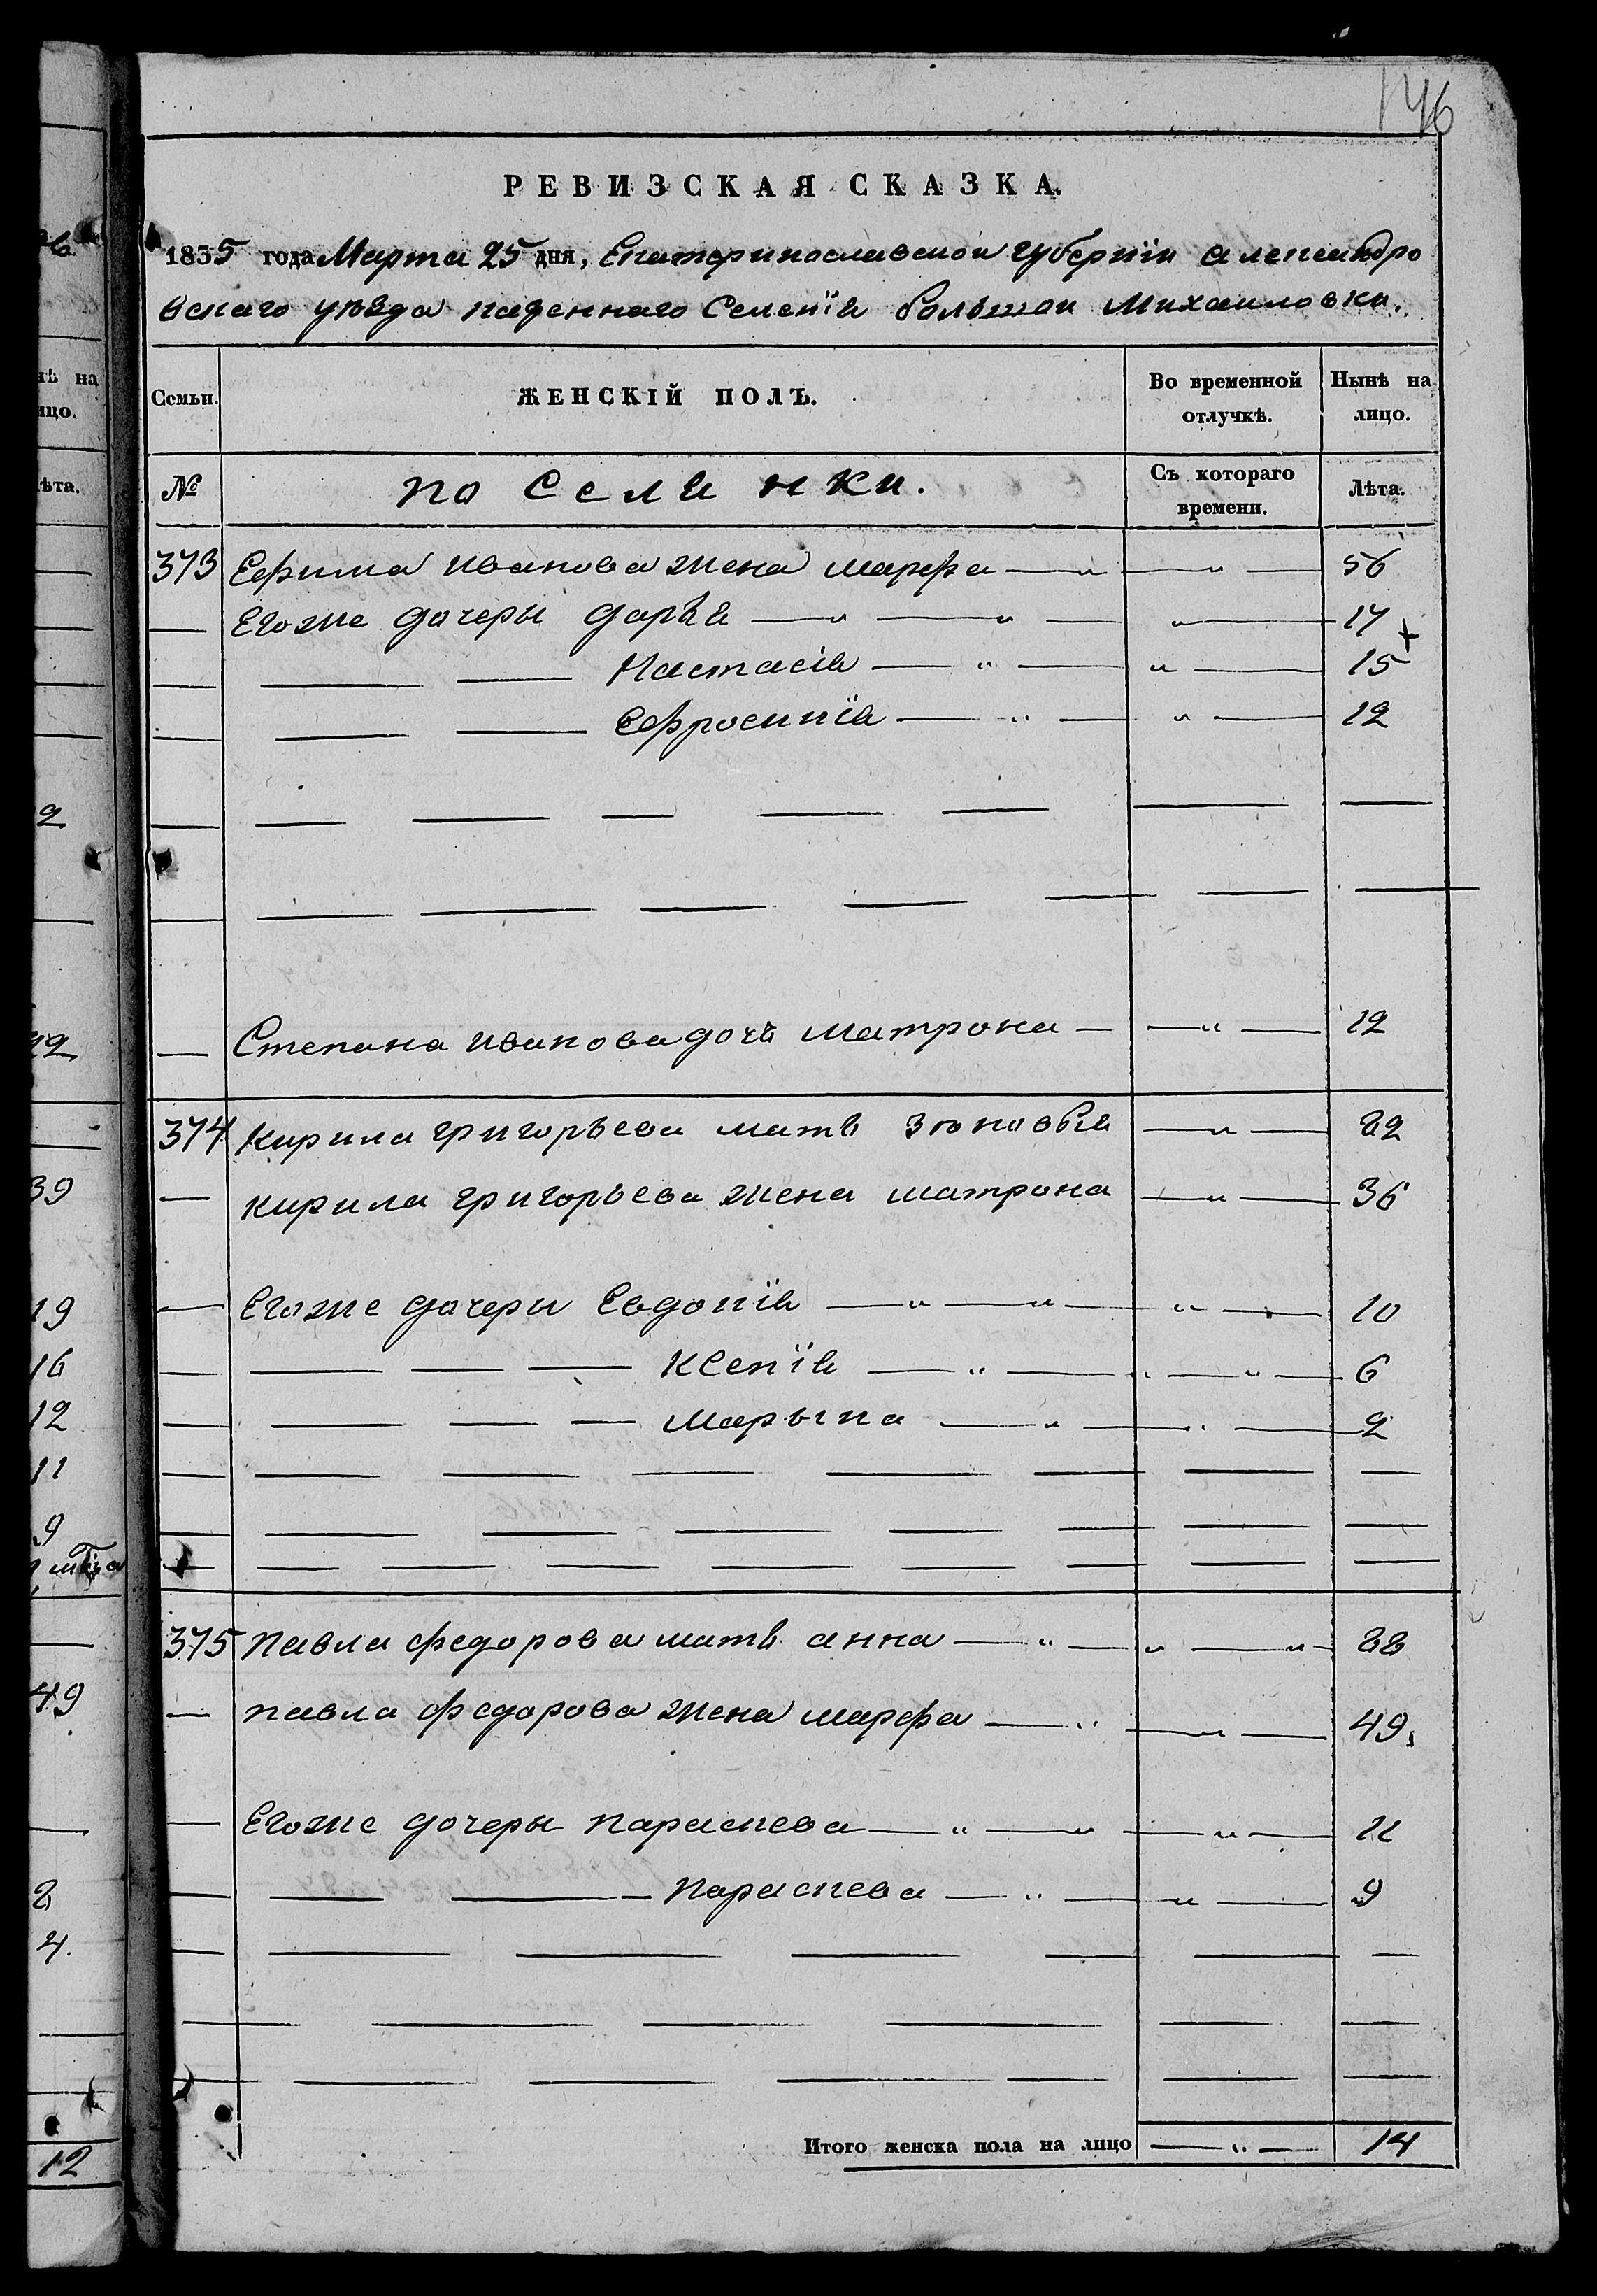 146
РЕВИЗСКАЯ СКАЗКА.
1835 года Марта 25 дня, Екатеринославской губернїи Александро
вскаго уѣзда казеннаго Селенїя большой Михаиловки.
Семьи. ЖЕНСКІЙ ПОЛЪ. Во временной отлучкѣ. Нынѣ на лицо.
№ поселянки. Съ котораго времени. Лѣта.
373 Ефима иванова жена марфа — " — " — 56
— Егоже дочеры дарья — " — " — " — 17
— — — Настасія — " — " — 15
— — — Ефросинїя — " — " — 12
— Степана иванова дочь матрона — — " — 12
374 Кирила григорьева мать зѣновья — " — 82
— кирила григорьева жена матрона — " — 36
— Егоже дочери Евдокїя — " — " — " — 10
— — — — Ксенїя — " — " — " — 6
— — — — марына — " — " — 2
375 павла федорова мать анна — " — " — " 88
— павла федорова жена марфа — " — " — 49.
— Егоже дочеры параскева — " — " — " — 11
— — — параскева — " — " — 9
Итого женска пола на лицо — " — 14
нѣ на
ицо.
ѣта.
2
22
39
19
16
12
11
9
49
2
4.
12